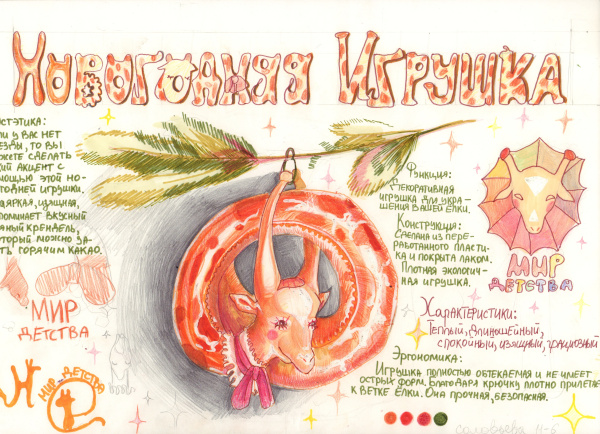 Новогодняя Игрушка
эстэтика:
ли у вас нет
езвы, то вы
жете сделать
ий акцент с
мощью этой но-
годней игрушки.
аяркая, изящная,
поминает вкусный
аный крендель,
торый можно за-
ть горячим какао.
МИР
ДЕТСТВА
МИР ДЕТСТВА
Функция:
Декоративная
игрушка для укра-
шения вашей ёлки.
Конструкция:
Сделана из пере-
работанного пласти-
ка и покрыта лаком.
Плотная экологич-
ная игрушка.
МИР
ДЕТСТВА
Характеристики:
Теплый, длинношейный,
спокойный, изящный, грациозный
Эргономика:
Игрушка полностью обтекаемая и не имеет
острых форм. Благодаря крючку плотно прилегае
к ветке ёлки. Она прочная, безопасная.
Соловьева 11-Б